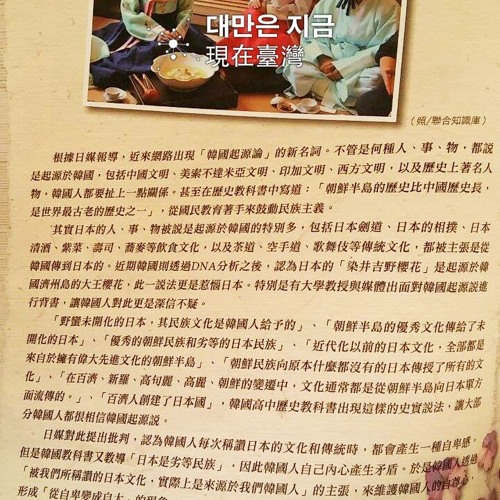 대만은 지금
現在臺灣
(照/聯合知識庫)
根據日媒報導，近來網路出現「韓國起源論」的新名詞。不管是何種人、事、物，都說
是起源於韓國，包括中國文明、美索不達米亞文明、印加文明、西方文明，以及歷史上著名人
物，韓國人都要扯上一點關係。甚至在歷史教科書中寫道：「朝鮮半島的歷史比中國歷史長，
是世界最古老的歷史之一」，從國民教育著手來鼓動民族主義。
其實日本的人、事、物被說是起源於韓國的特別多，包括日本劍道、日本的相撲、日本
清酒、紫菜、壽司、蕎麥等飲食文化，以及茶道、空手道、歌舞伎等傳統文化，都被主張是從
韓國傳到日本的。近期韓國則透過DNA分析之後，認為日本的「染井吉野櫻花」是起源於韓
國濟州島的大王櫻花，此一說法更是惹惱日本。特別是有大學教授與媒體出面對韓國起源說進
行背書，讓韓國人對此更是深信不疑。
「野蠻未開化的日本，其民族文化是韓國人給予的」、「朝鮮半島的優秀文化傳給了未
開化的日本」、「優秀的朝鮮民族和劣等的日本民族」、「近代化以前的日本文化，全部都是
來自於擁有偉大先進文化的朝鮮半島」、「朝鮮民族向原本什麼都沒有的日本傳授了所有的文
化」、「在百濟、新羅、高句麗、高麗、朝鮮的變遷中，文化通常都是從朝鮮半島向日本單方
面流傳的。」、「百濟人創建了日本國」，韓國高中歷史教科書出現這樣的史實說法，讓大部
分韓國人都很相信韓國起源說。
日媒對此提出批判，認為韓國人每次稱讚日本的文化和傳統時，都會產生一種自卑感。
但是韓國教科書又教導「日本是劣等民族」，因此韓國人自己內心產生矛盾。於是韓國人透過
「被我們所稱讚的日本文化，實際上是來源於我們韓國人」的主張，來維護韓國人的自尊心，
形成「從自卑變成自大」的現象